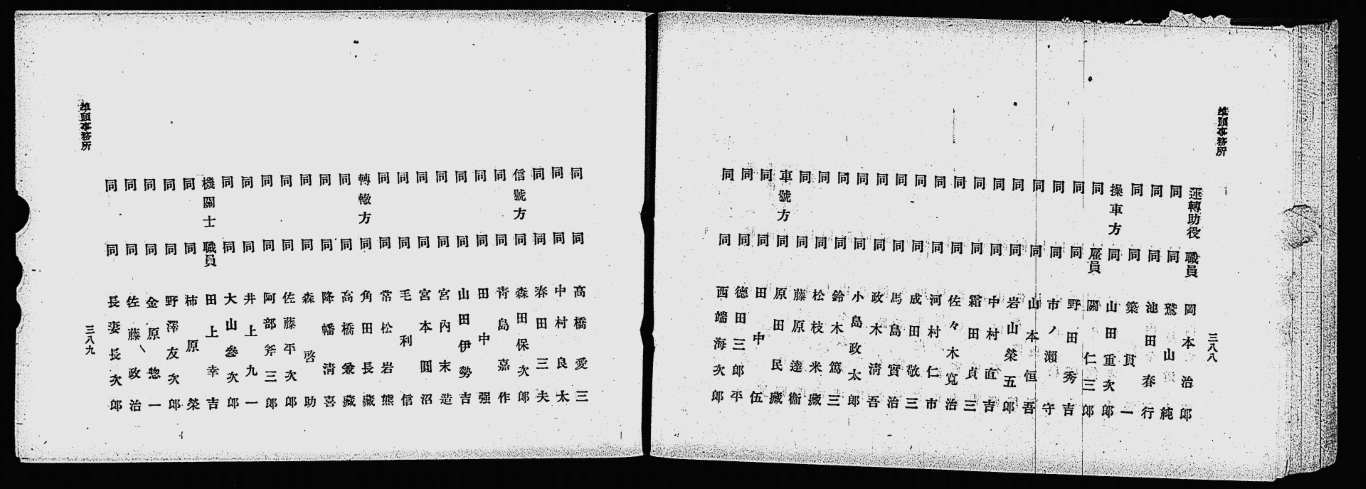 埠頭事務所
三八八
運轉助役 職員 岡本治郎
同 同 鷲山純
同 同 池田春行
同 同 築貫一
操車方 同 山田重次郎
同 雇員 關仁三郎
同 同 野田秀吉
同 同 市ノ瀬守
同 同 山本恒吾
同 同 岩山榮五郎
同 同 中村直吉
同 同 霜田貞三
同 同 佐々木寛治
同 同 河村仁市
同 同 成田敬三
同 同 馬島實治
同 同 政木清吾
同 同 小島政太郎
同 同 鈴木篤三
同 同 松枝米藏
同 同 藤原達衞
車號方 同 原田民藏
同 同 田中伍
同 同 德田三郎平
同 同 西端海次郎
同 同 高橋愛三
同 同 中村良太
同 同 春田三夫
信號方 同 森田保次郎
同 同 青島嘉作
同 同 田中强
同 同 山田伊勢吉
同 同 宮內末造
同 同 宮本圓沼
同 同 毛利信
同 同 常松岩熊
轉轍方 同 角田長藏
同 同 高橋愛藏
同 同 降幡清喜
同 同 森啓助
同 同 佐藤平次郎
同 同 阿部斧三郎
同 同 井上九一
同 同 大山參次郎
機關士 職員 田上幸吉
同 同 柿原榮
同 同 野澤友次郎
同 同 金原惣一
同 同 佐藤政治
同 同 長妻長次郎
埠頭事務所
三八九